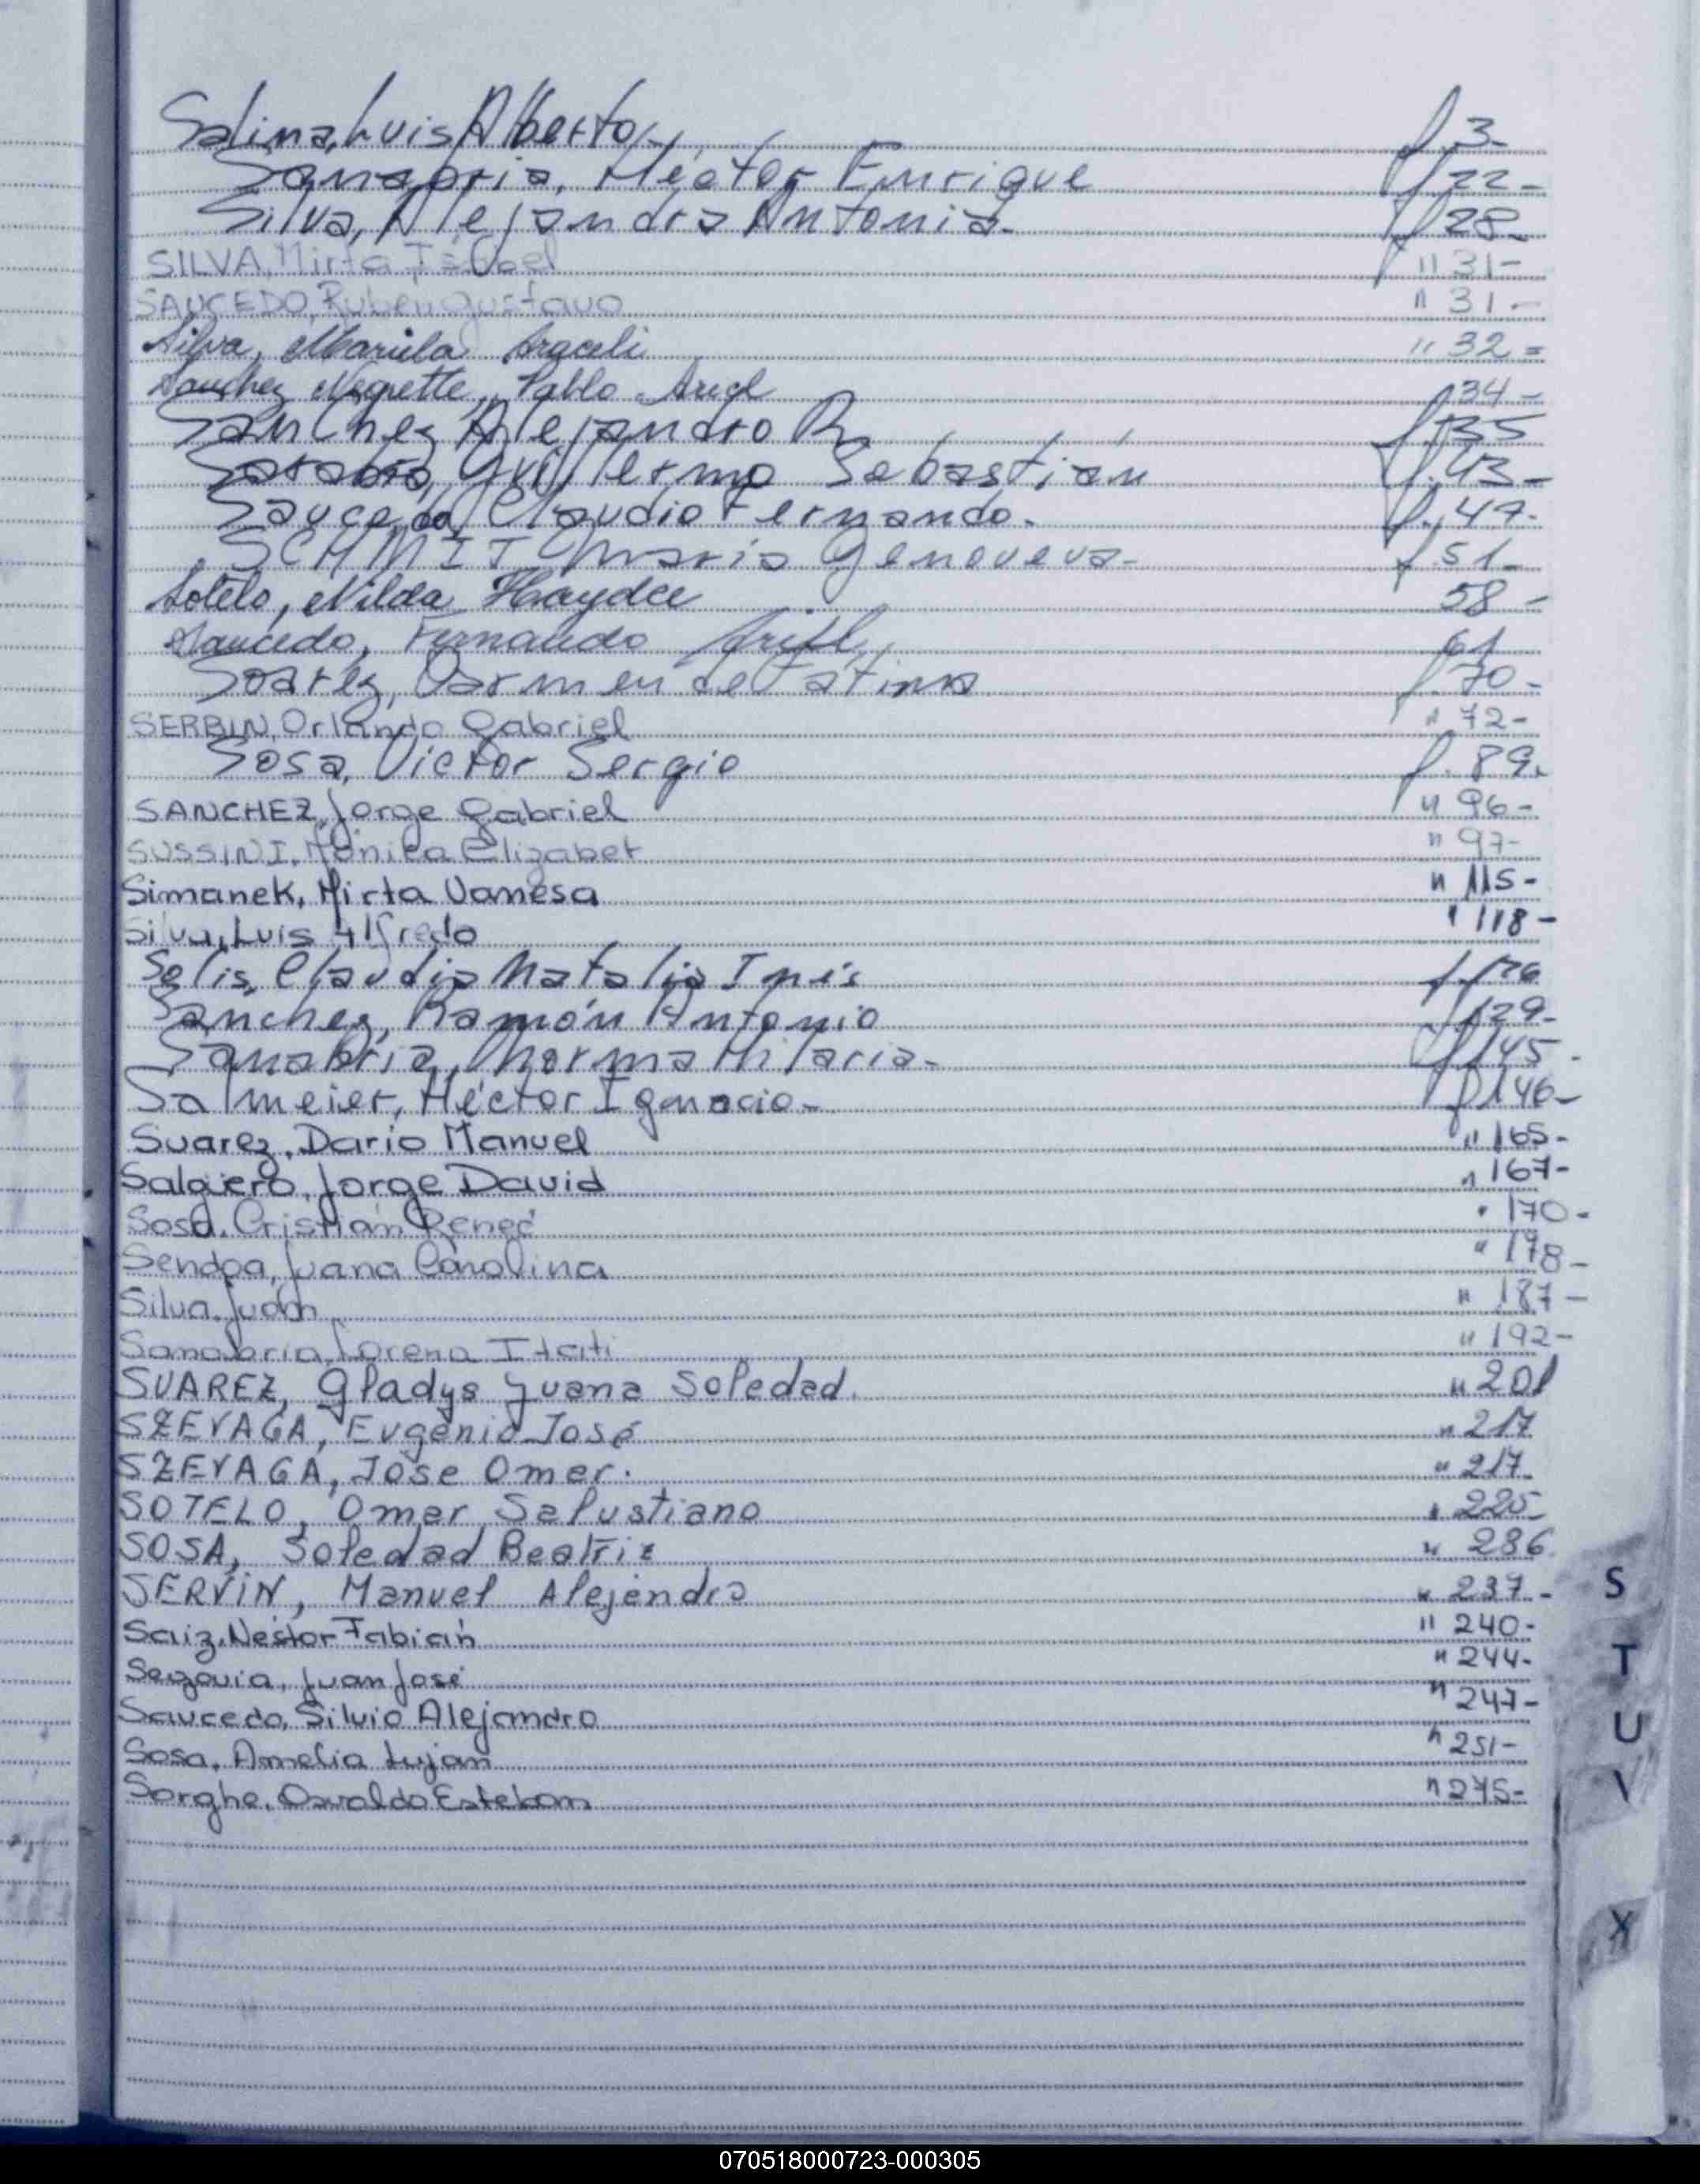 Salina, Luis Alberto f. 3-
Sanabria, Héctor Enrique f 22-
Silva, Alejandra Antonia. f 28-
SILVA, Mirta Isabel " 31-
SAUCEDO, Ruben Gustavo " 31-
Silva, Mariela Araceli " 32=
Sanchez Negrette, Pablo Ariel 34-
Sanchez Alejandro R. f. 35
Sarabia, Guillermo Sebastián f. 43-
Saucedo, Claudio Fernando. f. 47-
SCHMIT Maria Genoveva- f. 51-
Sotelo, Nilda Haydee 58-
Saucedo, Fernando Ariel, 61
Soarez, Carmen de Fatima f. 70-
SERBIN, Orlando Gabriel " 72-
Sosa, Victor Sergio f. 89.
SANCHEZ, Jorge Gabriel " 96-
SUSSINI, Mónica Elizabet " 97-
Simanek, Mirta Vanesa " 115-
Silva, Luis Alfredo " 118-
Solis, Claudia Natalia Inés f. 126
Sanchez, Ramón Antonio f 129-
Sanabria, Norma Hilaria- f 145-
Salmeier, Héctor Ignacio- f 146-
Suarez, Dario Manuel " 165-
Salguero, Jorge David " 167-
Sosa, Cristian Reneé " 170-
Sendoa, Juana Carolina " 178-
Silva, Juan " 187-
Sanabria, Lorena Itati " 192-
SUAREZ, Gladys Juana Soledad. " 201
SZEVAGA, Eugenio José " 217
SZEVAGA, Jose Omer. " 217
SOTELO, Omer Salustiano " 225
SOSA, Soledad Beatriz " 236
SERVIN, Manuel Alejandro " 237-
Saiz, Néstor Fabián " 240-
Segovia, Juan José " 244-
Saucedo, Silvio Alejandro " 247-
Sosa, Amelia Lujan " 251-
Sorghe, Osvaldo Esteban " 275-
S
T
U
X
070518000723-000305